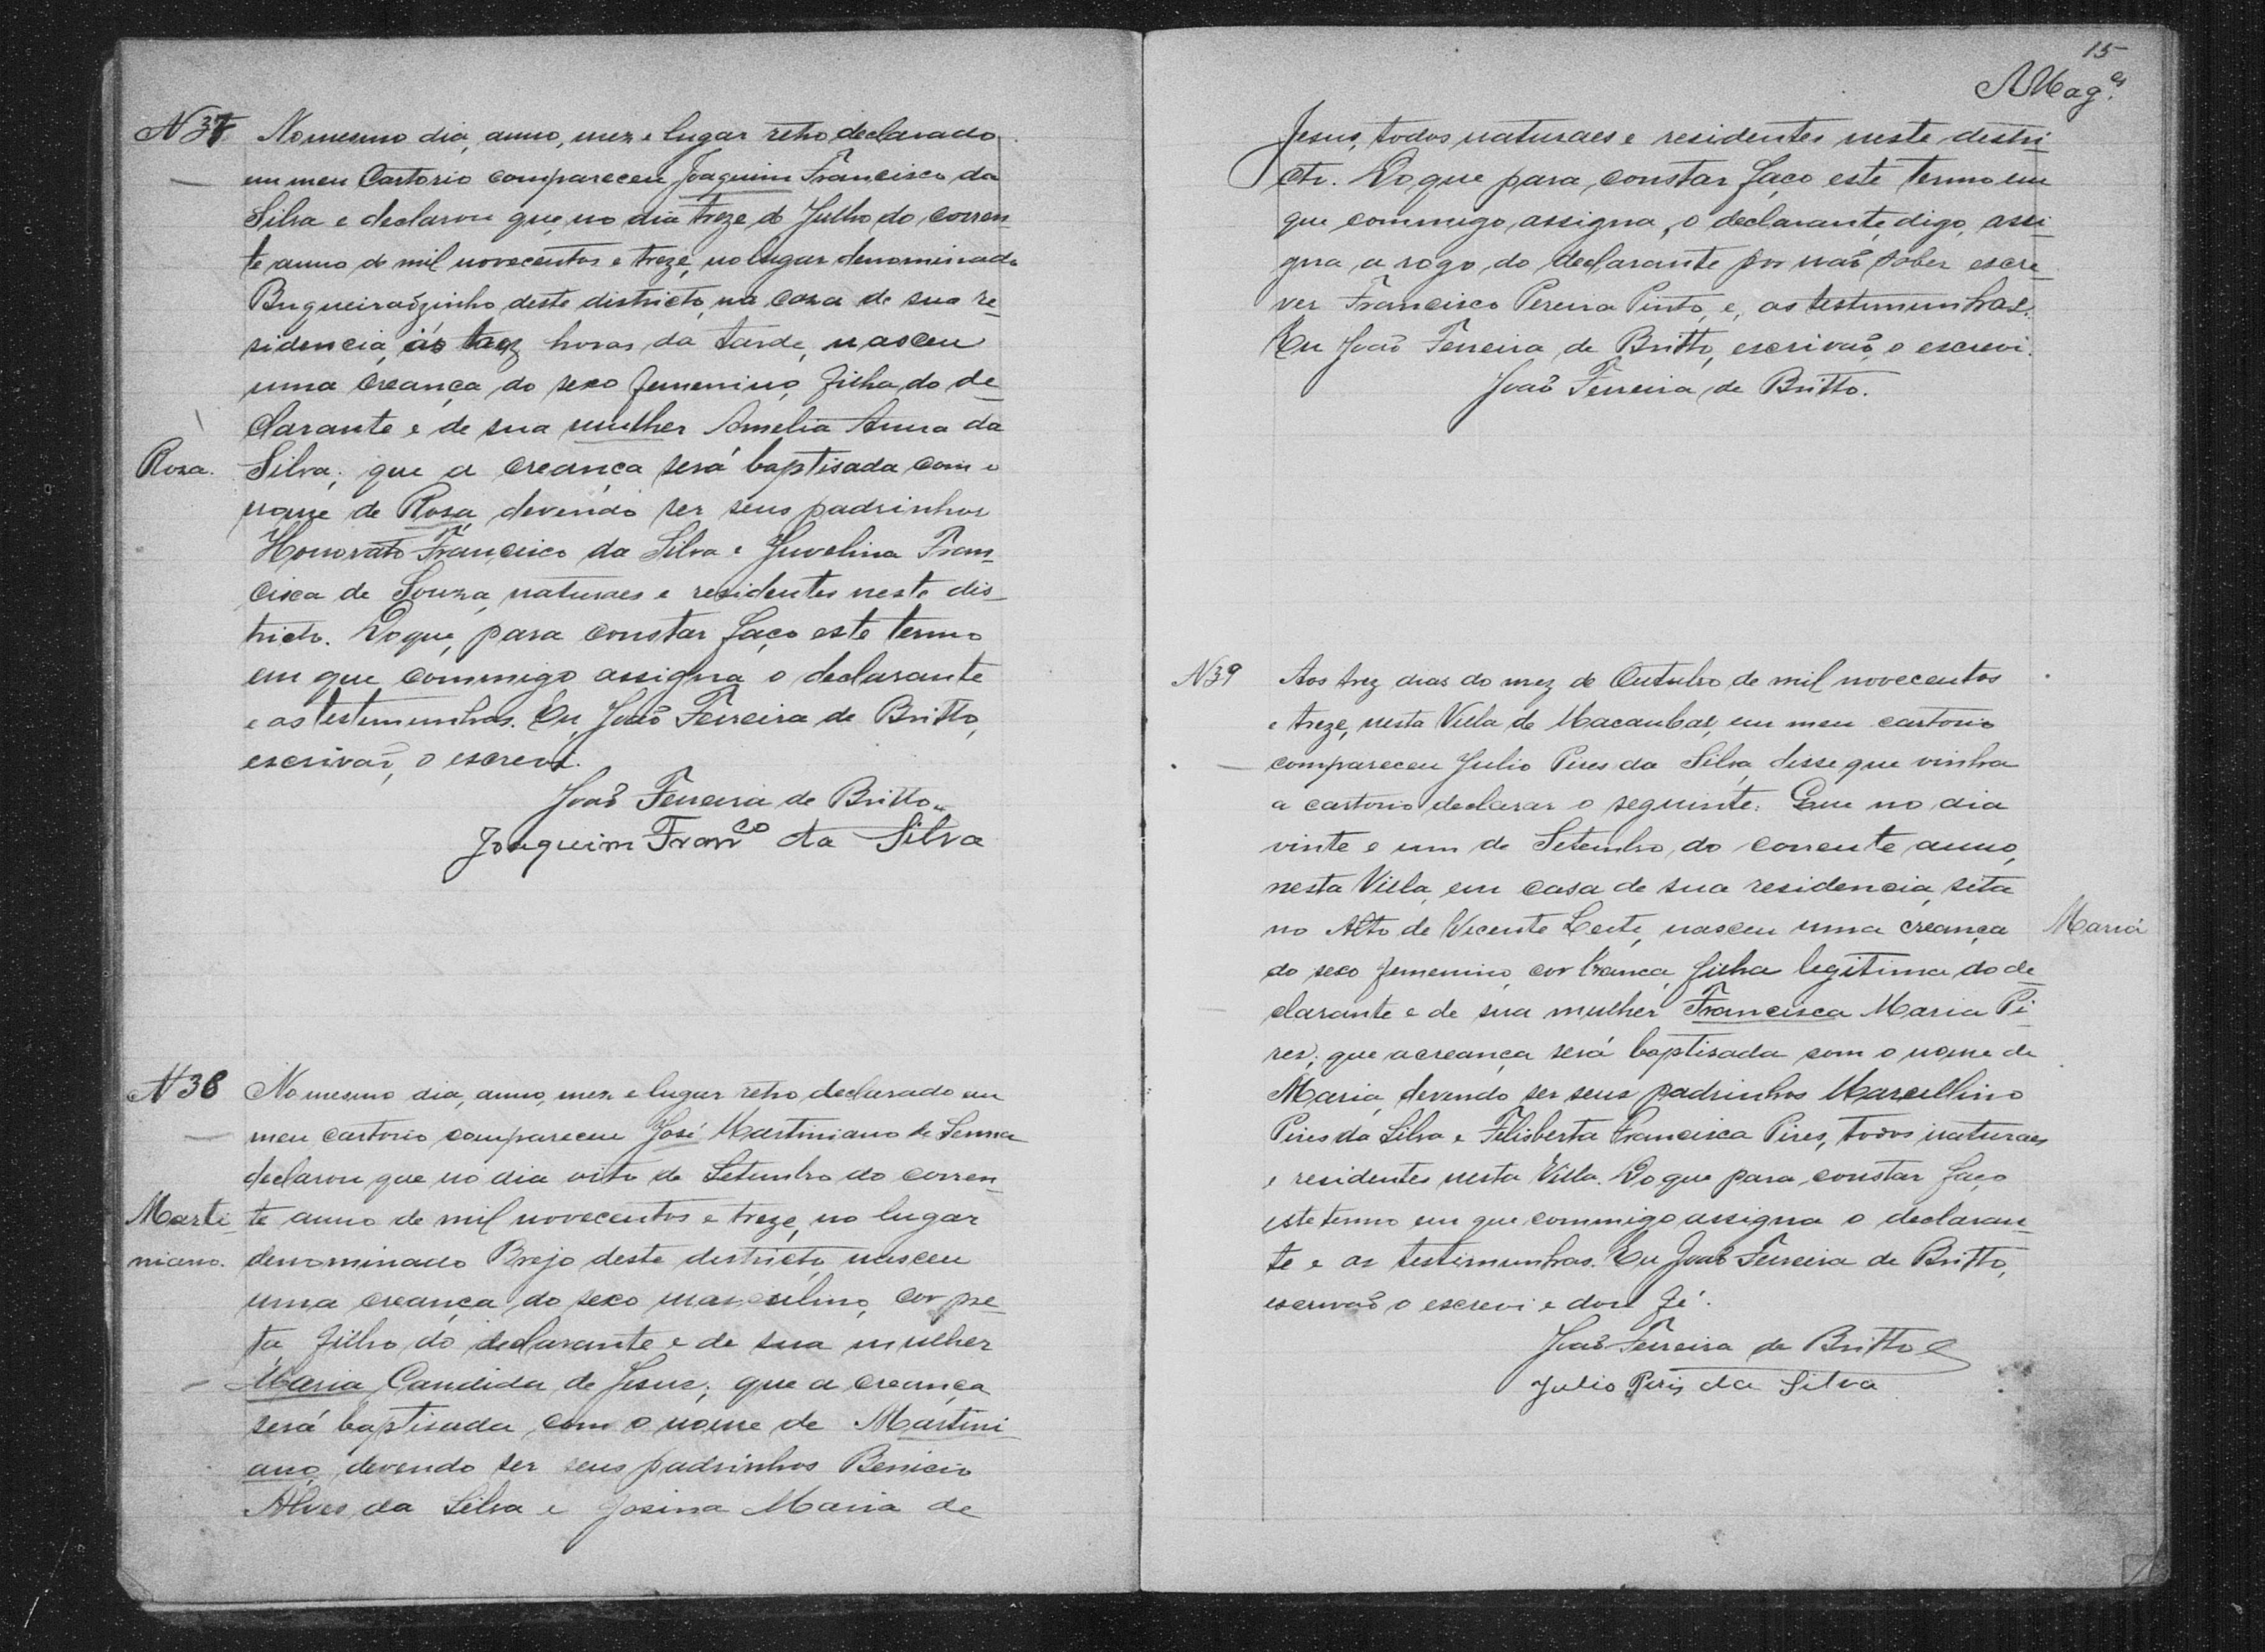 N 37 No mesmo dia, anno, mez e lugar retro declarado
em meu Cartorio compareceu Joaquim Francisco da
Silva e declarou que, no dia treze de Julho do corren-
te anno de mil novecentos e treze, no lugar denominado
deste districto, na casa de sua re-
sidencia, ás trez horas da tarde, nasceu
uma creança do sexo femenino, filha do de-
clarante e de sua mulher Amelia Anna da
Rosa. Silva; que a creança será baptisada com o
nome de Rosa, devendo ser seus padrinhos
Honorato Francisco da Silva e Juvelina Fran-
cisca de Souza, naturaes e residentes neste dis-
tricto. Do que, para constar faço este termo
em que commigo assigna o declarante
e as testemunhas. Eu, João Ferreira de Britto,
escrivaõ, o escrevi.
João Ferreira de Britto.
Joaquim Franco da Silva
N 38 No mesmo dia, anno, mez e lugar retro declarado em
meu cartorio compareceu José Martiniano de Senna
declarou que no dia oito de Setembro do corren-
Marti- te anno de mil novecentos e treze, no lugar
niano. denominado Brejo deste districto, nasceu
uma creança do sexo masculino, cor pre-
ta filho do declarante e de sua mulher
Maria Candida de Jesus; que a creança
será baptisada com o nome de Martini-
ano, devendo ser seus padrinhos Benicio
Alves da Silva e Josina Maria de
15
AMag.es
Jesus, todos naturaes e residentes neste distri-
cto. Do que para constar faço este termo em
que commigo assigna, o declarante, digo, assi-
gna a rogo do declarante por naõ saber escre-
ver Francisco Pereira Pinto, e, as testimunhas.
Eu João Ferreira de Britto, escrivaõ, o escrevi.
João Ferreira de Britto.
N 39 Aos trez dias do mez de Outubro de mil novecentos
e treze, nesta Villa de Macaubas, em meu cartorio
compareceu Julio Pires da Silva, disse que vinha
a cartorio declarar o seguinte: Que no dia
vinte e um de Setembro do corrente anno,
nesta Villa, em casa de sua residencia, sita
no Alto de Vicente Leite, nasceu uma creança Maria
do sexo femenino, cor branca, filha legitima do de-
clarante e de sua mulher Francisca Maria Pi-
res; que a creança será baptisada com o nome de
Maria, devendo ser seus padrinhos Marcellino
Pires da Silva e Felisberta Francisca Pires, todos naturaes
e residentes nesta Villa. Do que para constar faço
este termo em que commigo assigna o declaran-
te e as testimunhas. Eu João Ferreira de Britto,
escrivaõ o escrevi e dou fé.
João Ferreira de Britto
Julio Piris da Silva